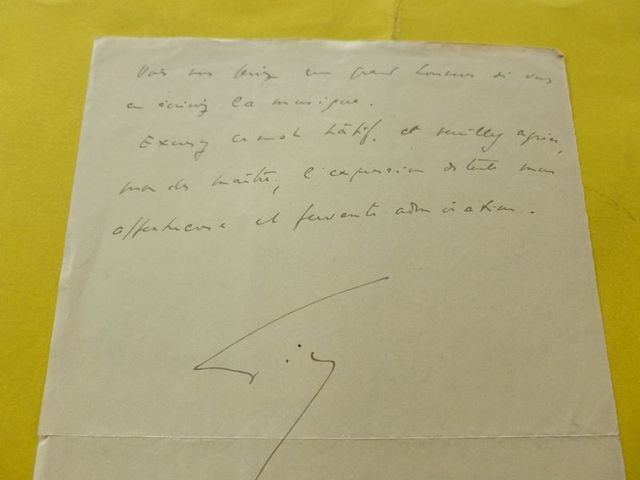 Vous nous feriez un grand honneur si vous
en écriviez la musique.
Excusez ce mot hâtif, et veuillez agréer,
mon cher maître, l'expression de toute mon
affectueuse et fervente admiration.